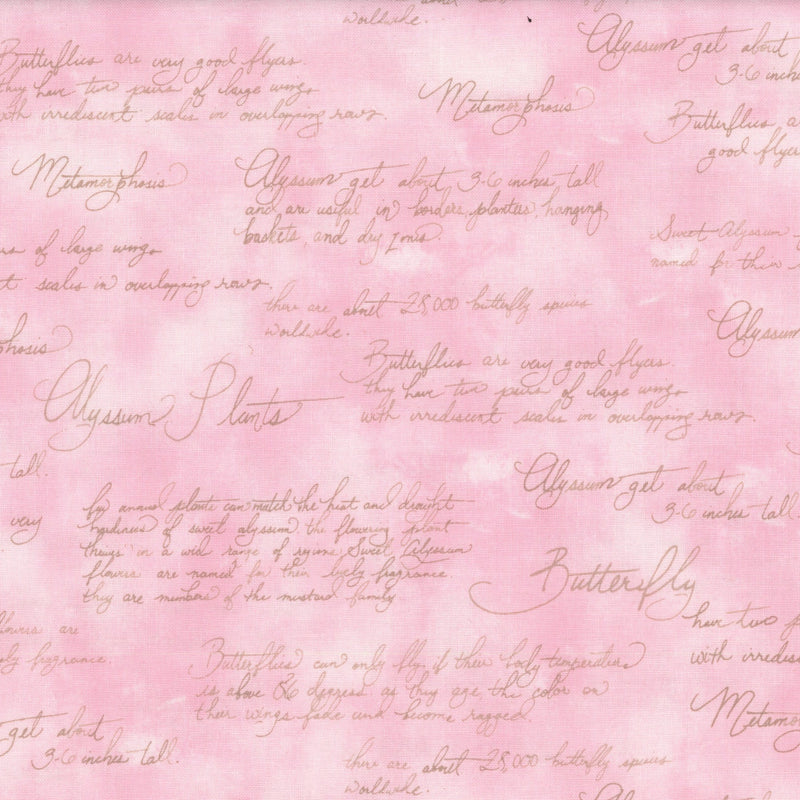 worldwide.
Alyssum get about
3-6 inch
Butterflies are very good flyers.
they have two pairs of large wings
with irrediscent scales in overlapping rows.
Metamorphosis
Butterflies a
good flyer
Metamorphosis
Alyssum get about 3-6 inches tall
and are useful in borders, planters, hanging
baskets, and dry
Sweet Alyssum
named for their
of large wings
scales in overlapping rows.
there are about 28,000 butterfly species
worldwide.
Alyssum
phosis
Butterflies are very good flyers.
they have two pairs of large wings
with irrediscent scales in overlapping rows.
Alyssum Plants
tall.
Alyssum get about
3-6 inches tall
very
few annual plants can match the heat and drought
hardiness of sweet alyssum. the flowering plant
in a wide range of regions. Sweet Alyssum
flowers are named for their lovely fragrance.
they are members of the mustard family
Butterfly
have two p
with irredisc
flowers are
fragrance.
Butterflies can only fly if their body temperature
is above 86 degrees. as they age the color on
their wings fade and become ragged.
Metamor
get about
3-6 inches tall.
there are about 28,000 butterfly species
worldwide.
Alyssum